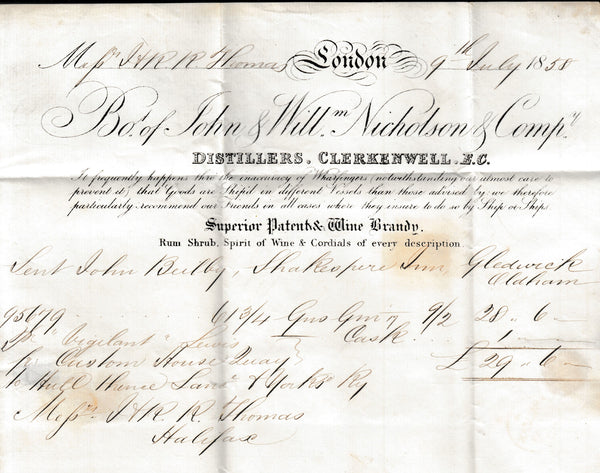 Messrs J & R. R. Thomas London 9th July 1858
Bot. of John & Willm. Nicholson & Compy.
DISTILLERS, CLERKENWELL. E.C.
It frequently happens thro the inaccuracy of Wharfingers, (notwithstanding our utmost care to
prevent it,) that Goods are Ship'd in different Vessels than those advised by; we therefore
particularly recommend our Friends in all cases where they insure to do so by Ship or Ships.
Superior Patent & Wine Brandy.
Rum Shrub, Spirit of Wine & Cordials of every description.
Sent John Bulby, Shakespire Inn, Gledwick
Oldham
95679 61 3/4 Gns Gin 9/2 28 " 6 -
Pr "Vigilant" Lewis Cask 1 -
fr Custom House Quay £29 " 6 -
to Hull thence Lancr & Yorksr Ry
Messrs J & R. R. Thomas
Halifax